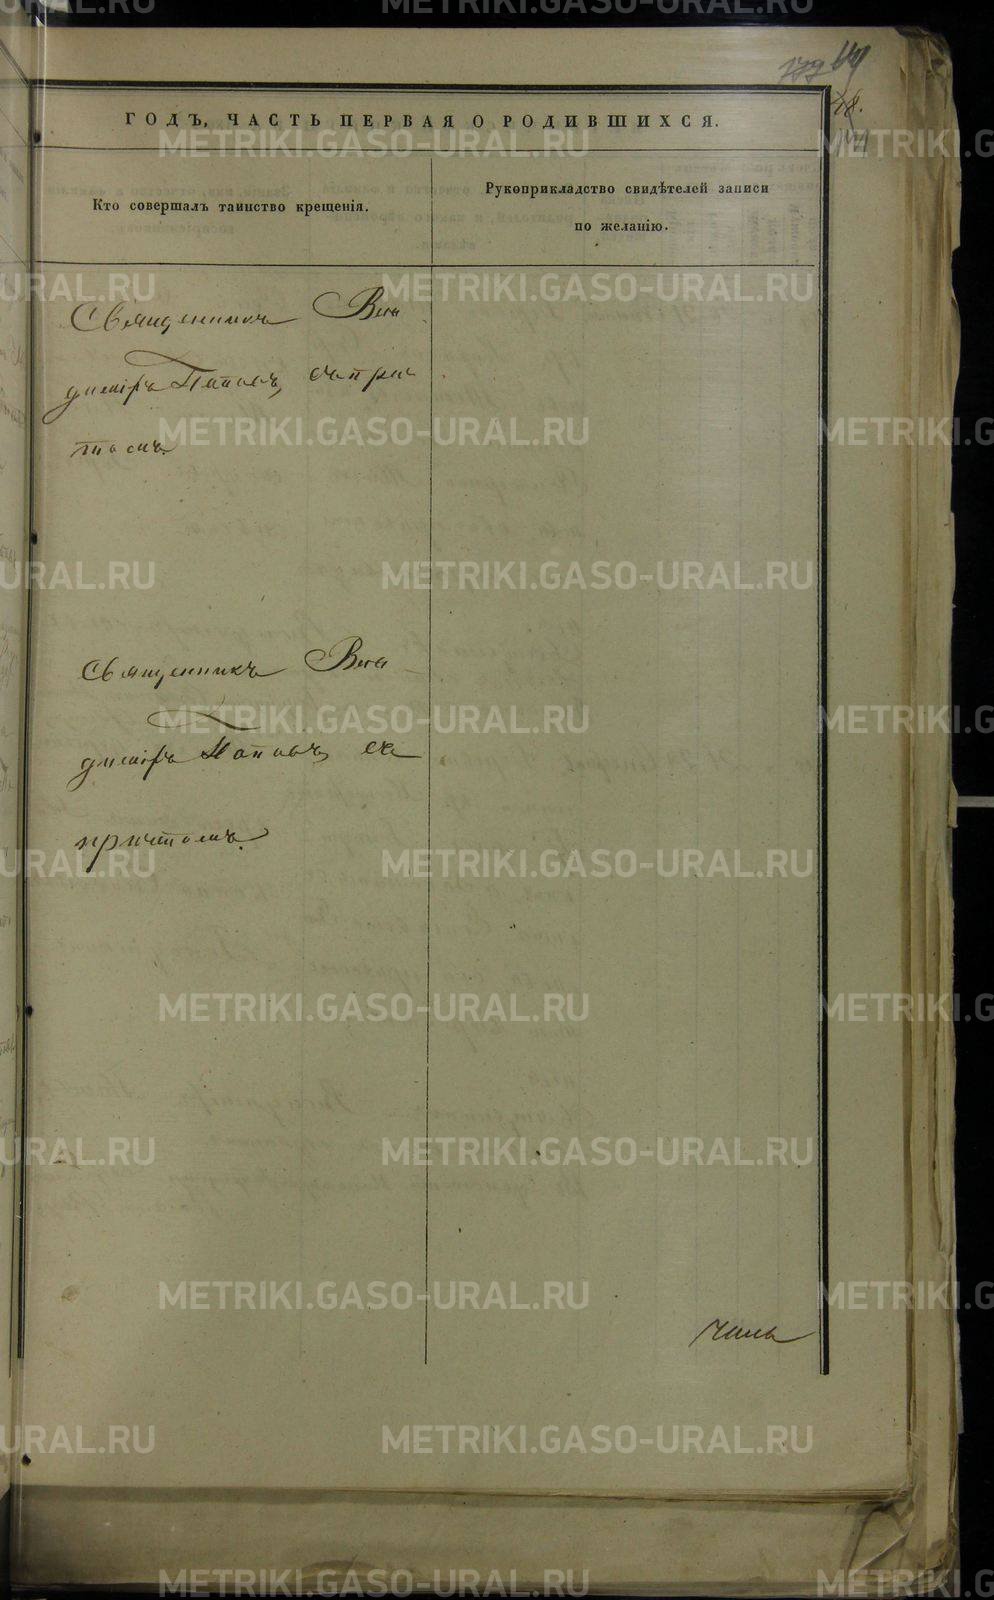 179
48.
ГОДЪ, ЧАСТЬ ПЕРВАЯ О РОДИВШИХСЯ.
Кто совершалъ таинство крещенія.
Рукоприкладство свидѣтелей записи
по желанію.
Священникъ Вла
диміръ Поповъ, съ при
томъ.
Священникъ Вла
диміръ Поповъ, съ
притомъ.
METRIKI.GASO-URAL.RU